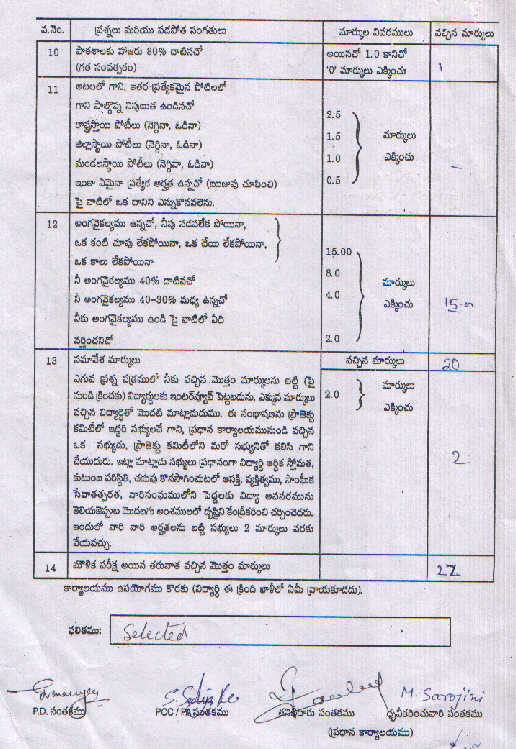 వ.నెం. ప్రశ్నలు మరియు పడపోత సంగతులు మార్కుల వివరములు వచ్చిన మార్కులు
10 పాఠశాలకు హాజరు 80% దాటినచో అయినచో 1.0 కానిచో
(గత సంవత్సరం) '0' మార్కులు ఎక్కించు 1
11 ఆటలలో గాని, ఇతర ప్రత్యేకమైన పోటీలలో
గాని పాల్గొన్న నిపుణత ఉండినచో
రాష్ట్రస్థాయి పోటీలు (నెగ్గినా, ఓడినా) 2.5
జిల్లాస్థాయి పోటీలు (నెగ్గినా, ఓడినా) 1.5 మార్కులు
మండలస్థాయి పోటీలు (నెగ్గినా, ఓడినా) 1.0 ఎక్కించు –
ఇంకా ఏమైనా ప్రత్యేక అర్హత ఉన్నచో (ఋజువు చూపించి) 0.5
పై వాటిలో ఒక దానిని ఎన్నుకొనవలెను.
12 అంగవైకల్యము ఉన్నచో, నీవు నడవలేక పోయినా,
ఒక కంటి చూపు లేకపోయినా, ఒక చేయి లేకపోయినా,
ఒక కాలు లేకపోయినా 15.00
నీ అంగవైకల్యము 40% దాటినచో 8.0
నీ అంగవైకల్యము 40-30% మధ్య ఉన్నచో 4.0 మార్కులు
నీకు అంగవైకల్యము ఉండి పై వాటిలో ఏది ఎక్కించు
వర్తించనిచో 2.0
13 సమావేశ మార్కులు వచ్చిన మార్కులు 20
ఎగువ ప్రశ్న పత్రములో నీకు వచ్చిన మొత్తం మార్కులను బట్టి (పై మార్కులు
నుండి క్రిందకు) విద్యార్థులకు ఇంటర్వ్యూకి పెట్టబడును. ఎక్కువ మార్కులు 2.0 ఎక్కించు
వచ్చిన విద్యార్థితో మొదట మాట్లాడుదుము. ఈ సంభాషణను ప్రాజెక్టు
కమిటీలో ఇద్దరి సభ్యులచే గాని, ప్రధాన కార్యాలయమునుండి వచ్చిన
ఒక సభ్యుడు, ప్రాజెక్టు కమిటీలోని మరో సభ్యునితో కలిసి గాని
చేయుదురు. ఇట్లా మాట్లాడు సభ్యులు ప్రధానంగా విద్యార్థి ఆర్థిక స్తోమత,
కుటుంబ పరిస్థితి, చదువు కొనసాగించుటలో ఆసక్తి, వ్యక్తిత్వము, సామాజిక 2
సేవాతత్పరత, వారిసంఘములోని పెద్దలకు విద్యా అవసరమును
తెలియజెప్పుట మొదలగు అంశములలో దృష్టిని కేంద్రీకరించి చర్చించెదరు.
ఇందులో వారి వారి అర్హతలను బట్టి సభ్యులు 2 మార్కులు వరకు
వేయవచ్చు.
14 మౌఖిక పరీక్ష అయిన తరువాత వచ్చిన మొత్తం మార్కులు 22
కార్యాలయము ఉపయోగము కొరకు (విద్యార్థి ఈ క్రింది ఖాళీలో ఏమీ వ్రాయకూడదు).
ఫలితము: Selected
M. Sarojini
P.D. సంతకము PCC / PA సంతకము తనిఖీదారు సంతకము ధృవీకరించువారి సంతకము
(ప్రధాన కార్యాలయము)